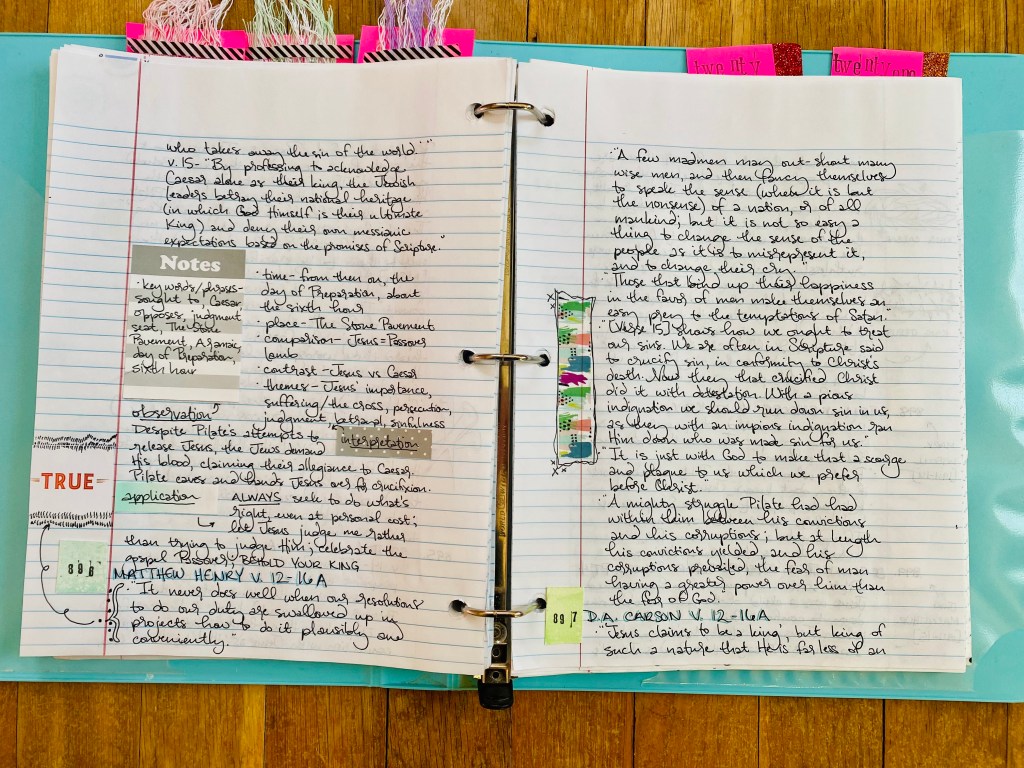 who takes away the sin of the world.'"
v. 15- "By professing to acknowledge
Caesar alone as their king, the Jewish
leaders betray their national heritage
(in which God Himself is their ultimate
King) and deny their own messianic
expectations based on the promises of Scripture."
Notes
· key words/phrases-
sought to, Caesar,
opposes, judgment
seat, The Stone
Pavement, Aramaic,
day of Preparation,
sixth hour
· time- from then on, the
day of Preparation, about
the sixth hour
· place- The Stone Pavement
· comparison- Jesus-Passover
lamb
· contrast- Jesus vs Caesar
· themes- Jesus' importance,
suffering/the cross, persecution,
judgment, betrayal, sinfulness
observation
Despite Pilate's attempts to
release Jesus, the Jews demand
His blood, claiming their allegiance to Caesar;
Pilate caves and hands Jesus over for crucifixion.
interpretation
TRUE
application
ALWAYS seek to do what's
right, even at personal cost;
let Jesus judge me rather
than trying to judge Him; celebrate the
gospel Passover; BEHOLD YOUR KING
896
MATTHEW HENRY V. 12-16A
· "It never does well when our resolutions
to do our duty are swallowed up in
projects how to do it plausibly and
conveniently."
twenty
twenty one
· "A few madmen may out-shout many
wise men, and then fancy themselves
to speak the sense (when it is but
the nonsense) of a nation, or of all
mankind; but it is not so easy a
thing to change the sense of the
people as it is to misrepresent it,
and to change their cry."
· "Those that bind up their happiness
in the favor of men make themselves an
easy prey to the temptations of Satan."
· "[Verse 15] shows how we ought to treat
our sins. We are often in Scripture said
to crucify sin, in conformity to Christ's
death. Now they that crucified Christ
did it with detestation. With a pious
indignation we should run down sin in us,
as they with an impious indignation ran
Him down who was made sin for us."
· "It is just with God to make that a scourge
and plague to us which we prefer
before Christ.
· "A mighty struggle Pilate had had
within him between his convictions
and his corruptions; but at length
his convictions yielded, and his
corruptions prevailed, the fear of man
having a greater power over him than
the fear of God.
897
D.A. CARSON V. 12-16A
· "Jesus claims to be a king', but king of
such a nature that He is far less of an